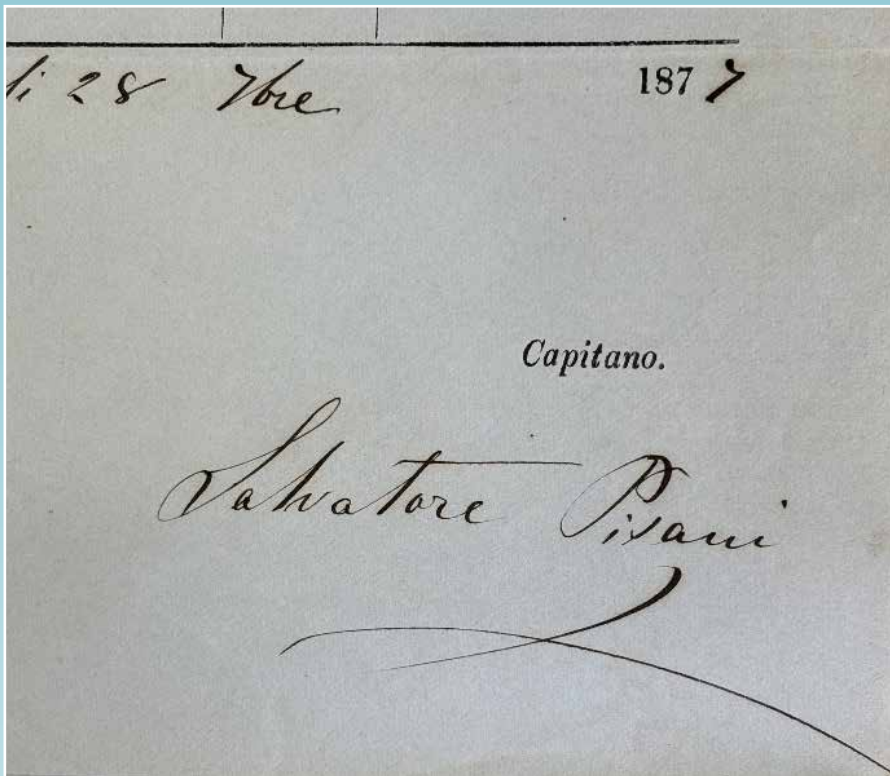 li 28 7bre 1877
Capitano.
Salvatore Pisani